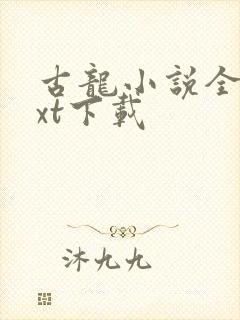 古龍小說全
xt下載
沐九九